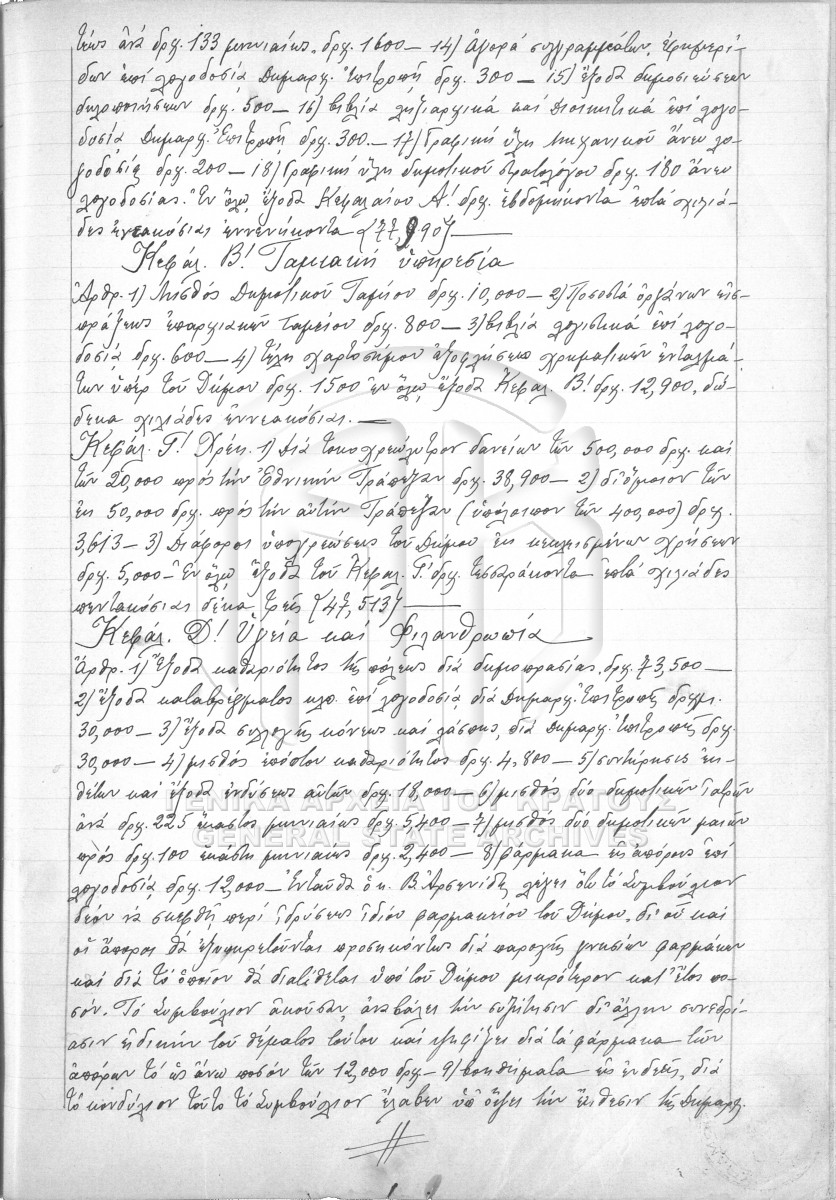 τέως ἀνὰ δρχ. 133 μηνιαίως, δρχ. 1600 — 14) Ἀγορὰ συγγραμμάτων, ἐφημερί-
δων ἐπὶ λογοδοσίᾳ Δημαρχ. Ἐπιτροπῆς δρχ. 300 — 15) ἔξοδα δημοσιεύσεων
δηλοποιήσεων δρχ. 500 — 16) Βιβλία ληξιαρχικὰ καὶ Διοικητικὰ ἐπὶ λογο-
δοσίᾳ Δημαρχ. Ἐπιτροπῆς δρχ. 300 — 17) Γραφικὴ ὕλη Μηχανικοῦ ἄνευ λο-
γοδοσίας δρχ. 200 — 18) Γραφικὴ ὕλη δημοτικοῦ στρατολόγου δρχ. 180 ἄνευ
λογοδοσίας. Ἐν ὅλῳ ἔξοδα Κεφαλαίου Α! δρχ. ἑβδομήκοντα ἑπτὰ χιλιά-
δες ἐνεακόσιαι ἐννενήκοντα {77,990} —
Κεφάλ. Β! Ταμιακὴ ὑπηρεσία
Ἄρθρ. 1) Μισθὸς Δημοτικοῦ Ταμίου δρχ. 10,000 — 2) Ποσοστὰ ὀργάνων εἰσ-
πράξεως ἐπαρχιακῶν ταμείου δρχ. 800 — 3) Βιβλία λογιστικὰ ἐπὶ λογο-
δοσίᾳ δρχ. 600 — 4) τέλη χαρτοσήμου ἐξοφλήσεως χρηματικῶν ἐνταλμά-
των ὑπὲρ τοῦ Δήμου δρχ. 1500 ἐν ὅλῳ ἔξοδα Κεφαλ. Β! δρχ. 12,900, δώ-
δεκα χιλιάδες ἐννεακόσιαι. —
Κεφάλ. Γ! Χρέη. 1) Διὰ τοκοχρεώλυτρον δανείων τῶν 500,000 δρχ. καὶ
τῶν 20,000 πρὸς τὴν Ἐθνικὴν Τράπεζαν δρχ. 38,900 — 2) δι' ὅμοιον τῶν
ἐκ 50,000 δρχ. πρὸς τὴν αὐτὴν Τράπεζαν (ὑπόλοιπον τῶν 400,000) δρχ.
3,613 — 3) Διάφοροι ὑποχρεώσεις τοῦ Δήμου ἐκ κεκλεισμένων χρήσεων
δρχ. 5,000 — Ἐν ὅλῳ ἔξοδα τοῦ Κεφαλ. Γ! δρχ. τεσσαράκοντα ἑπτὰ χιλιάδες
πεντακόσιαι δέκα τρεῖς {47,513} —
Κεφάλ. Δ! Ὑγεία καὶ Φιλανθρωπία
Ἄρθρ. 1) Ἔξοδα καθαριότητος τῆς πόλεως διὰ δημοπρασίας, δρχ. 73,500 —
2) Ἔξοδα καταβρέγματος κλπ. ἐπὶ λογοδοσίᾳ διὰ Δημαρχ. Ἐπιτροπῆς δρχ.
30,000 — 3) Ἔξοδα συλλογῆς κόνεως καὶ λάσπης, διὰ Δημαρχ. Ἐπιτροπῆς δρχ.
30,000 — 4) μισθὸς ἐπόπτου καθαριότητος δρχ. 4,800 — 5) συντήρησις ἐκ-
θέτων καὶ ἔξοδα ἐνδύσεως αὐτῶν δρχ. 18,000 — 6) μισθὸς δύο δημοτικῶν ἰατρῶν
ἀνὰ δρχ. 225 ἕκαστος μηνιαίως δρχ. 5,400 — 7) μισθὸς δύο δημοτικῶν μαιῶν
πρὸς δρχ. 100 ἑκάστη μηνιαίως δρχ. 2,400 — 8) φάρμακα εἰς ἀπόρους ἐπὶ
λογοδοσίᾳ δρχ. 12,000 — Ἐνταῦθα ὁ κ. Β. Ἀρσενίδης λέγει ὅτι τὸ Συμβούλιον
δέον νὰ σκεφθῇ περὶ ἱδρύσεως ἰδίου φαρμακείου τοῦ Δήμου, δι' οὗ καὶ
οἱ ἄποροι θὰ ἐξυπηρετοῦνται προσηκόντως διὰ παροχῆς γνησίων φαρμάκων
καὶ διὰ τὸ ὁποῖον θὰ διατίθεται ὑπὸ τοῦ Δήμου μικρότερον κατ' ἔτος πο-
σόν. Τὸ Συμβούλιον ἀκοῦσαν, ἀναβάλλει τὴν συζήτησιν δι' ἄλλην συνεδρί-
ασιν εἰδικὴν τοῦ θέματος τούτου καὶ ψηφίζει διὰ τὰ φάρμακα τῶν
ἀπόρων τὸ ὡς ἄνω ποσὸν τῶν 12,000 δρχ. — 9) βοηθήματα εἰς ἐνδεεῖς, διὰ
τὸ κονδύλιον τοῦτο τὸ Συμβούλιον ἔλαβεν ὑπ' ὄψει τὴν ἔκθεσιν τῆς Δημαρχ.
ΓΕΝΙΚΑ ΑΡΧΕΙΑ ΤΟΥ ΚΡΑΤΟΥΣ
GENERAL STATE ARCHIVES